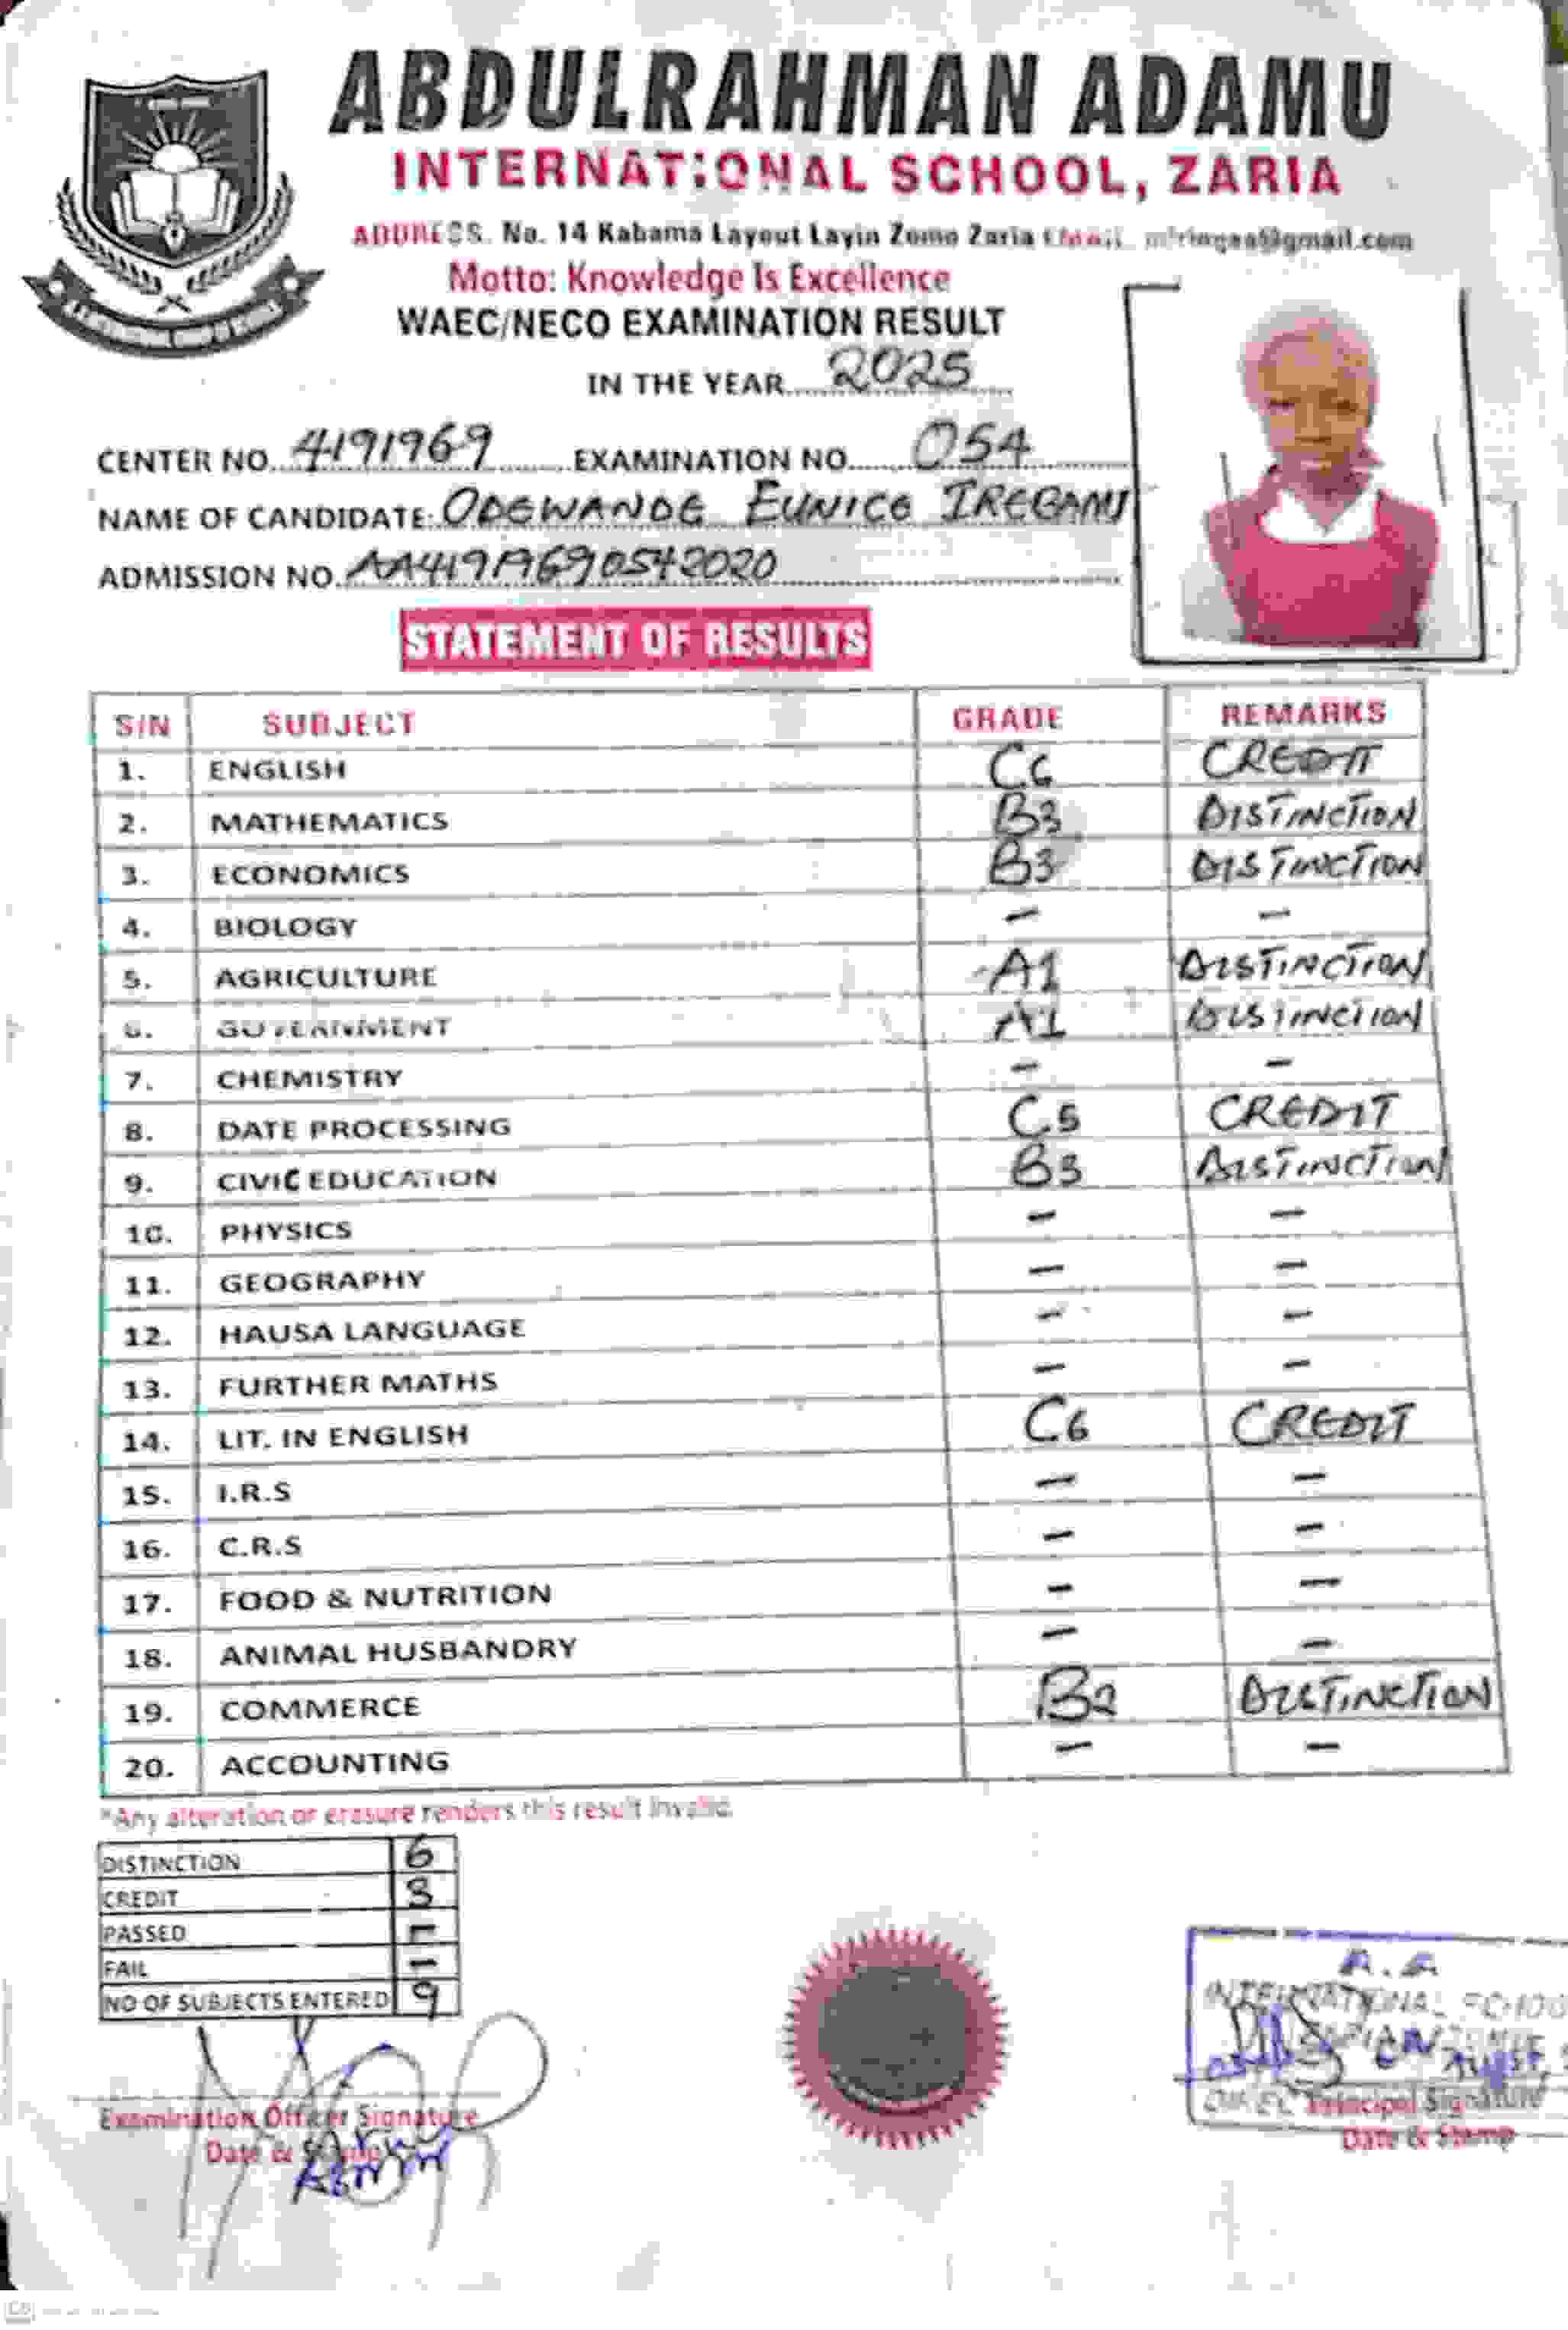 ABDULRAHMAN ADAMU
INTERNATIONAL SCHOOL, ZARIA
ADDRESS. No. 14 Kabama Layout Layin Zomo Zaria Email.
Motto: Knowledge Is Excellence
WAEC/NECO EXAMINATION RESULT
IN THE YEAR 2025
CENTER NO. 4191969 EXAMINATION NO. 054
NAME OF CANDIDATE: ODEWANDE EUNICE IREBAMI
ADMISSION NO. AA41919690542020
STATEMENT OF RESULTS
S/N SUBJECT GRADE REMARKS
1. ENGLISH C6 CREDIT
2. MATHEMATICS B3 DISTINCTION
3. ECONOMICS B3 DISTINCTION
4. BIOLOGY - -
5. AGRICULTURE A1 DISTINCTION
6. GOVERNMENT A1 DISTINCTION
7. CHEMISTRY - -
8. DATE PROCESSING C5 CREDIT
9. CIVIC EDUCATION B3 DISTINCTION
10. PHYSICS - -
11. GEOGRAPHY - -
12. HAUSA LANGUAGE - -
13. FURTHER MATHS - -
14. LIT. IN ENGLISH C6 CREDIT
15. I.R.S - -
16. C.R.S - -
17. FOOD & NUTRITION - -
18. ANIMAL HUSBANDRY - -
19. COMMERCE B2 DISTINCTION
20. ACCOUNTING - -
*Any alteration or erasure renders this result invalid.
DISTINCTION 6
CREDIT 3
PASSED -
FAIL -
NO OF SUBJECTS ENTERED 9
A.A
INTERNATIONAL SCHOO
Examination Officer Signature
Date & Stamp
Principal Signature
Date & Stamp